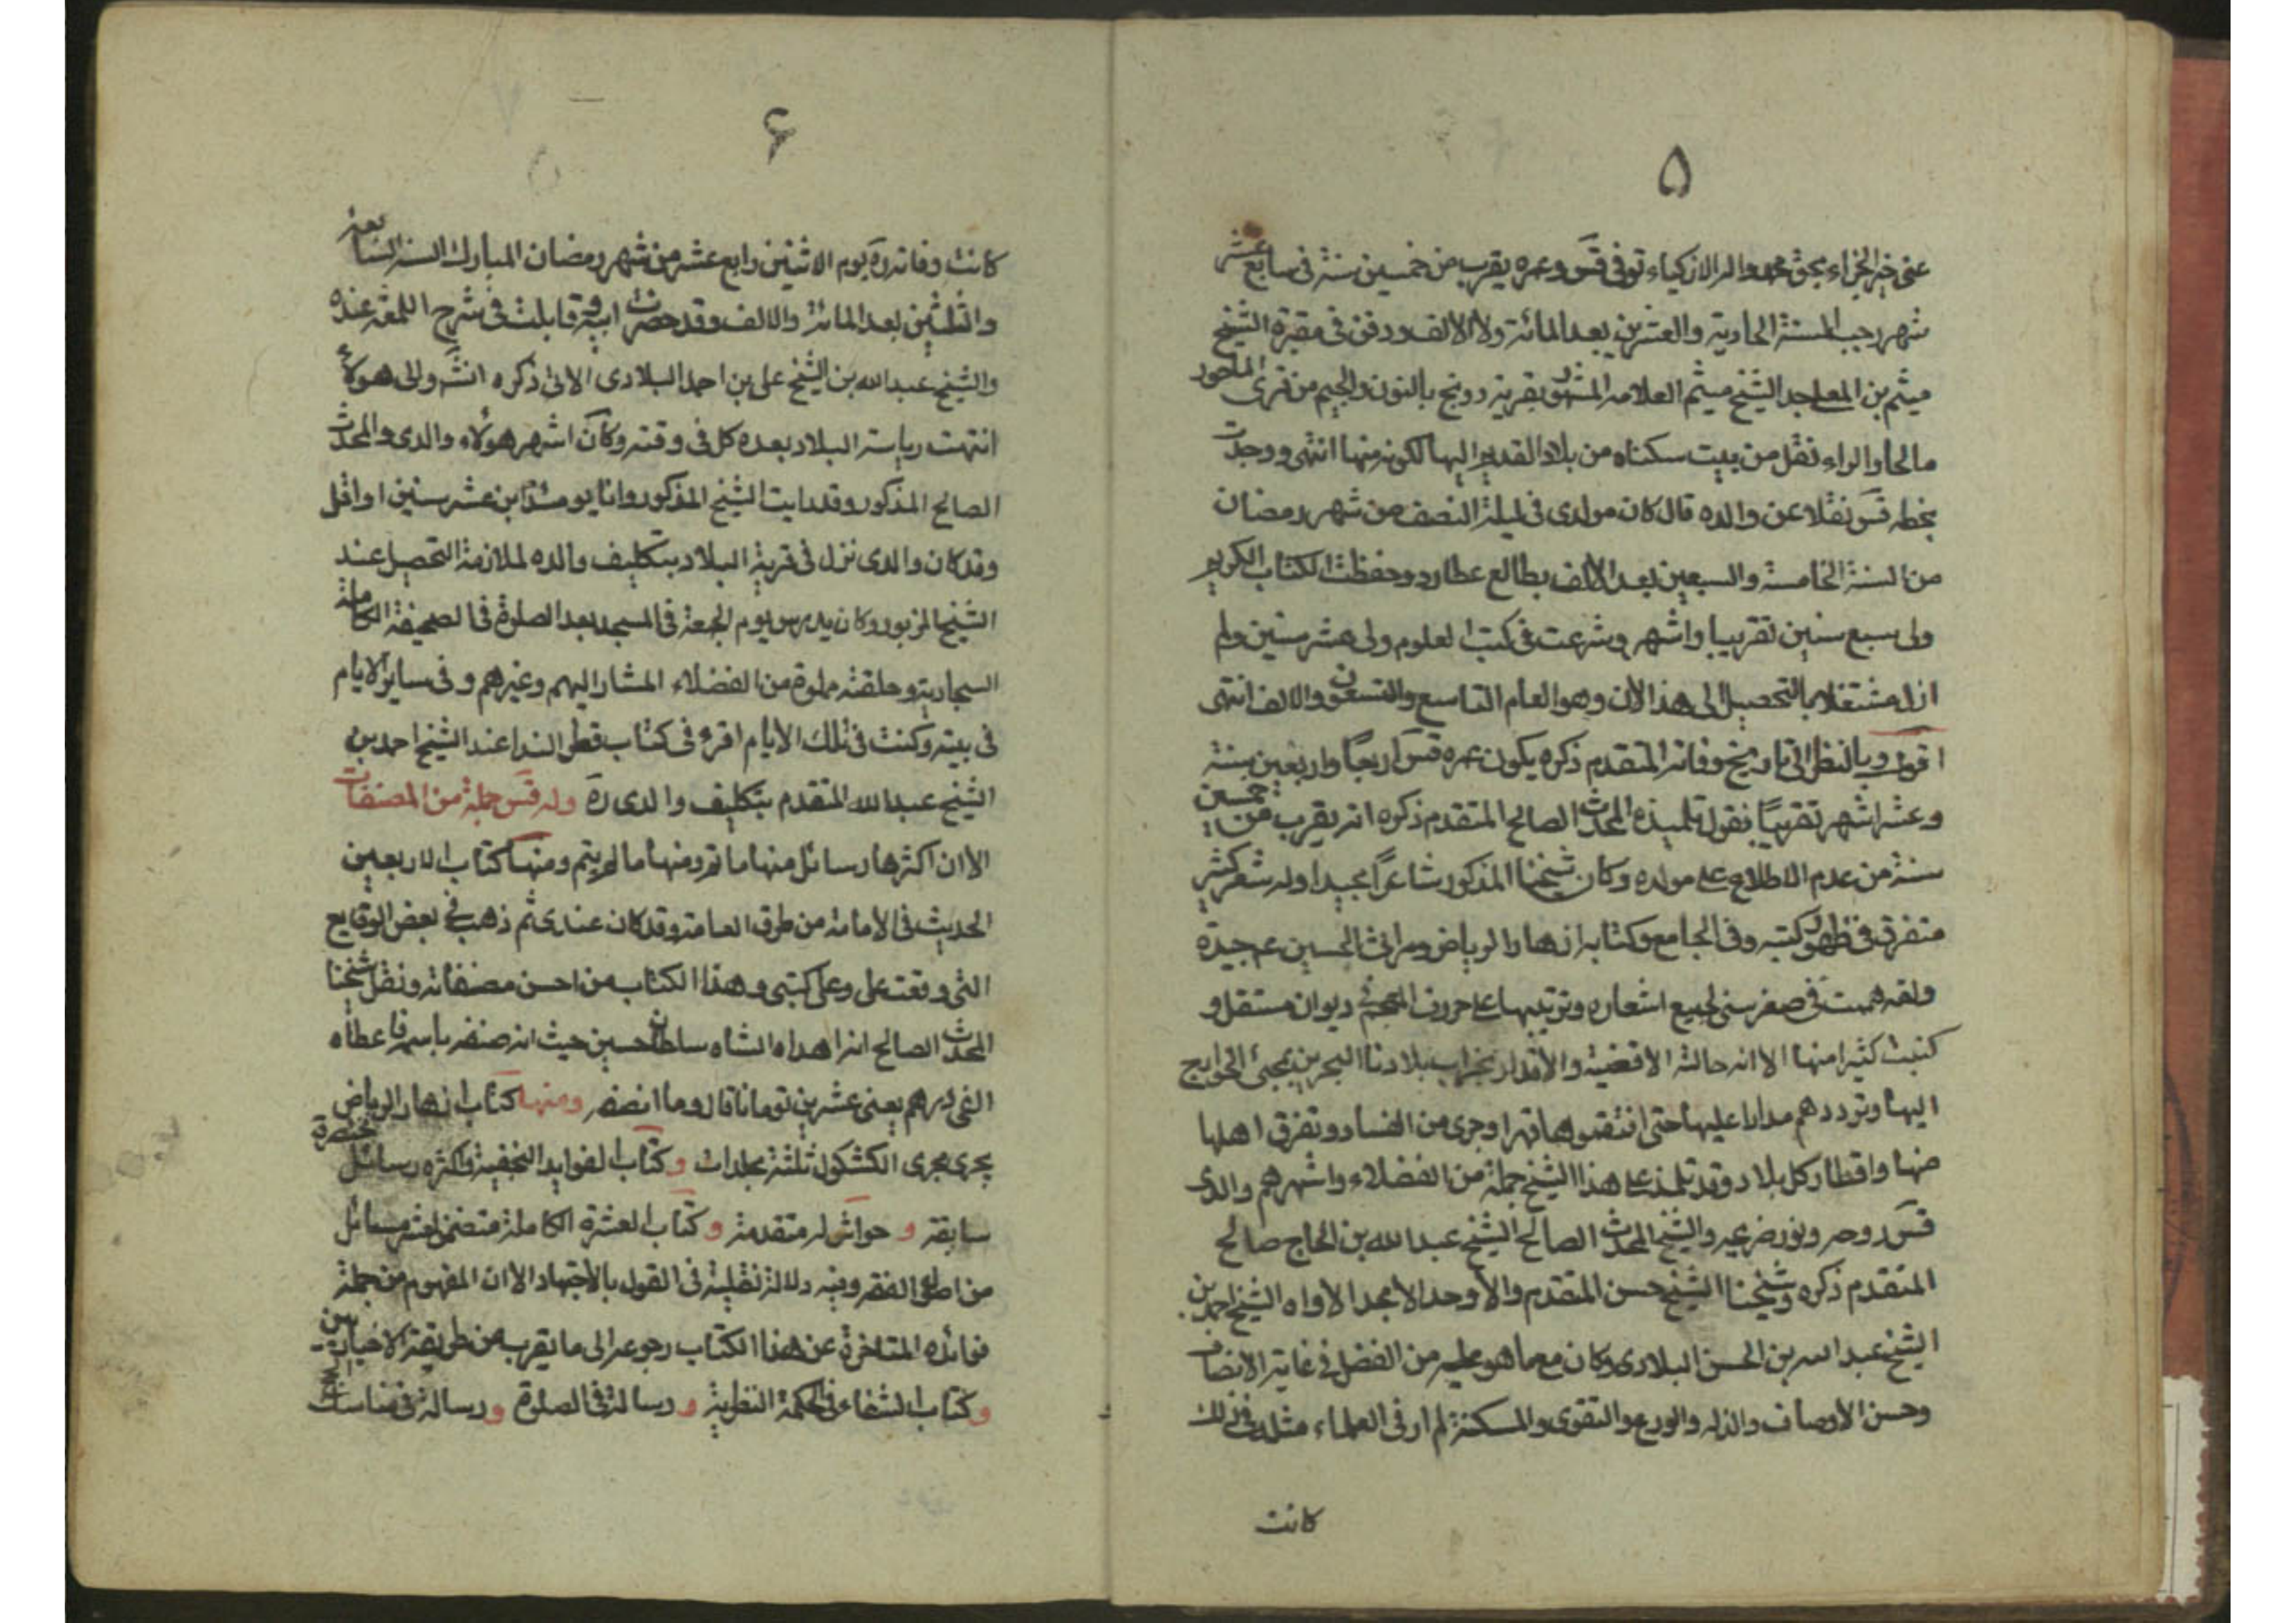 ٥
عنى خير الجزاء بحق محمد واله الازكياء توفى قس وعمره يقرب من خمسين سنة فى سابع عشر
شهر رجب السنة الحادية والعشرين بعد المائة والالف ودفن فى مقبرة الشيخ
ميثم بن المعلا جد الشيخ ميثم العلامه المشهور بقرية دونج بالنون والجيم من قرى الماحوز
مالحا والراء نقل من بيت سكناه من بلاد القديم اليها لكونه منها انتهى ووجدت
بخطه قس نقلا عن والده قال كان مولدى فى ليلة النصف من شهر رمضان
من السنة الخامسة والسبعين بعد الالف بطالع عطارد وحفظت الكتاب الكريم
ولى سبع سنين تقريبا واشهر وشرعت فى كتب العلوم ولى عشر سنين ولم
ازل مشتغلا بالتحصيل الى هذا الان وهو العام التاسع والتسعون والالف انتهى
اقول وبالنظر الى تاريخ وفاته المتقدم ذكره يكون عمره قس اربعا واربعين سنة
وعشر اشهر تقريبًا فقول تلميذه المحدث الصالح المتقدم ذكره انه يقرب من خمسين
سنة من عدم الاطلاع على مولده وكان شيخنا المذكور شاعراً مجيدا وله شعر كثير
متفرق فى ظهور كتبه وفى المجامع وكتابه ازهار الرياض ومراثى الحسين عم جيدة
ولقد هممت فى صغر سنى لجميع اشعاره وترتيبها على حروف المعجم فى ديوان مستقل و
كتبت كثيرا منها الا انه حالت الاقضية والاقدار بخراب بلادنا البحرين بمجئ الخوارج
اليها وترددهم مدارا عليها حتى افتتحوها قهرا وجرى من الفساد وتفرق اهلها
منها واقطار كل بلاد وقد تلمذ على هذا الشيخ جملة من الفضلاء واشهرهم والدى
قس روحه ونور ضريحه والشيخ المحدث الصالح الشيخ عبد الله بن الحاج صالح
المتقدم ذكره وشيخنا الشيخ حسن المتقدم والاوحد الامجد الاواه الشيخ احمد بن
الشيخ عبد الله بن الحسن البلادى وكان مع ما هو عليه من الفضل فى غاية الانصاف
وحسن الاوصاف والذله والورع والتقوى والمسكنة لم ار فى العلماء مثله فى ذلك
كانت
۶
كانت وفاته ره يوم الاثنين رابع عشر من شهر رمضان المبارك السنة السابعة
والثلثين بعد المائة والالف وقد حضرت وقابلت فى شرح اللمعه عنده
والشيخ عبد الله بن الشيخ على بن احمد البلادى الاتى ذكره انشَ والى هولاء
انتهت رياسة البلاد بعده كل فى وقته وكان اشهر هولاء والدى والمحدث
الصالح المذكور وقد رايت الشيخ المذكور وانا يومئذ ابن عشر سنين او اقل
وقد كان والدى نزل فى قرية البلاد بتكليف والده لملازمة التحصيل عند
الشيخ المزبور وكان يدرس يوم الجمعة فى المسجد بعد الصلوة فى الصحيفة الكاملة
السجادية وحلقته مملوة من الفضلاء المشار اليهم وغيرهم وفى ساير الايام
فى بيته وكنت فى تلك الايام اقرء فى كتاب قطر الندا عند الشيخ احمد بن
الشيخ عبد الله المتقدم بتكليف والدى ره وله قس جملة من المصنفات
الا ان اكثرها رسائل منها ما تم ومنها ما لم يتم ومنها كتاب الاربعين
الحديث فى الامامة من طرق العامة وقد كان عندى ثم ذهب فى بعض الوقايع
التى وقعت على وعلى كتبى وهذا الكتاب من احسن مصنفاته ونقل شيخنا
المحدث الصالح انه اهداه الشاه سلطان حسين حيث انه صنفه باسمه فاعطاه
الفى درهم يعنى عشرين تومانا قال وما انصفه ومنها كتاب ازهار الرياض
يجرى مجرى الكشكول ثلثة مجلدات و كتاب الفوايد النجفية واكثره رسائل مختصرة
سابقة و حواش له متقدمة و كتاب العشرة الكاملة متضمن لعشر مسائل
من اصول الفقه وفيه دلالة نقلية فى القول بالاجتهاد الا ان المفهوم من جملة
فوائده المتاخرة عن هذا الكتاب رجوعه الى ما يقرب من طريقة الاخباريين
و كتاب الشفاء فى الحكمة النظرية و رسالة فى الصلوة و رسالة فى مناسك الحج